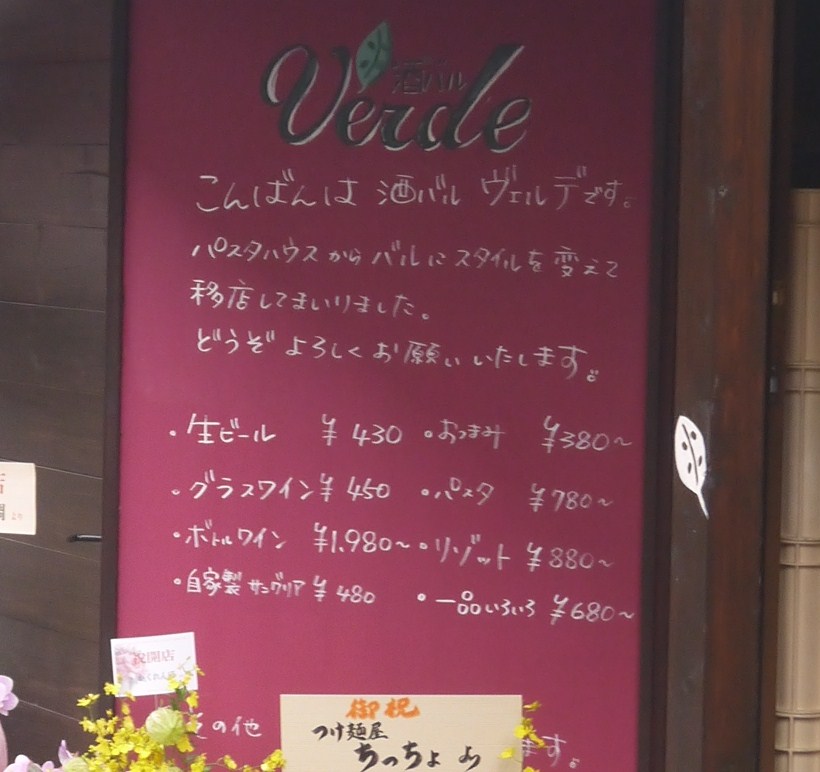 酒バル
Verde
こんばんは 酒バル ヴェルデです。
パスタハウスからバルにスタイルを変えて
移店してまいりました。
どうぞよろしくお願いいたします。
・生ビール ¥430 ・おつまみ ¥380~
・グラスワイン ¥450 ・パスタ ¥780~
・ボトルワイン ¥1.980~ ・リゾット ¥880~
・自家製サングリア ¥480 ・一品いろいろ ¥680~
祝開店
の他
ます。
御祝
つけ麺屋
ちっちょ
より